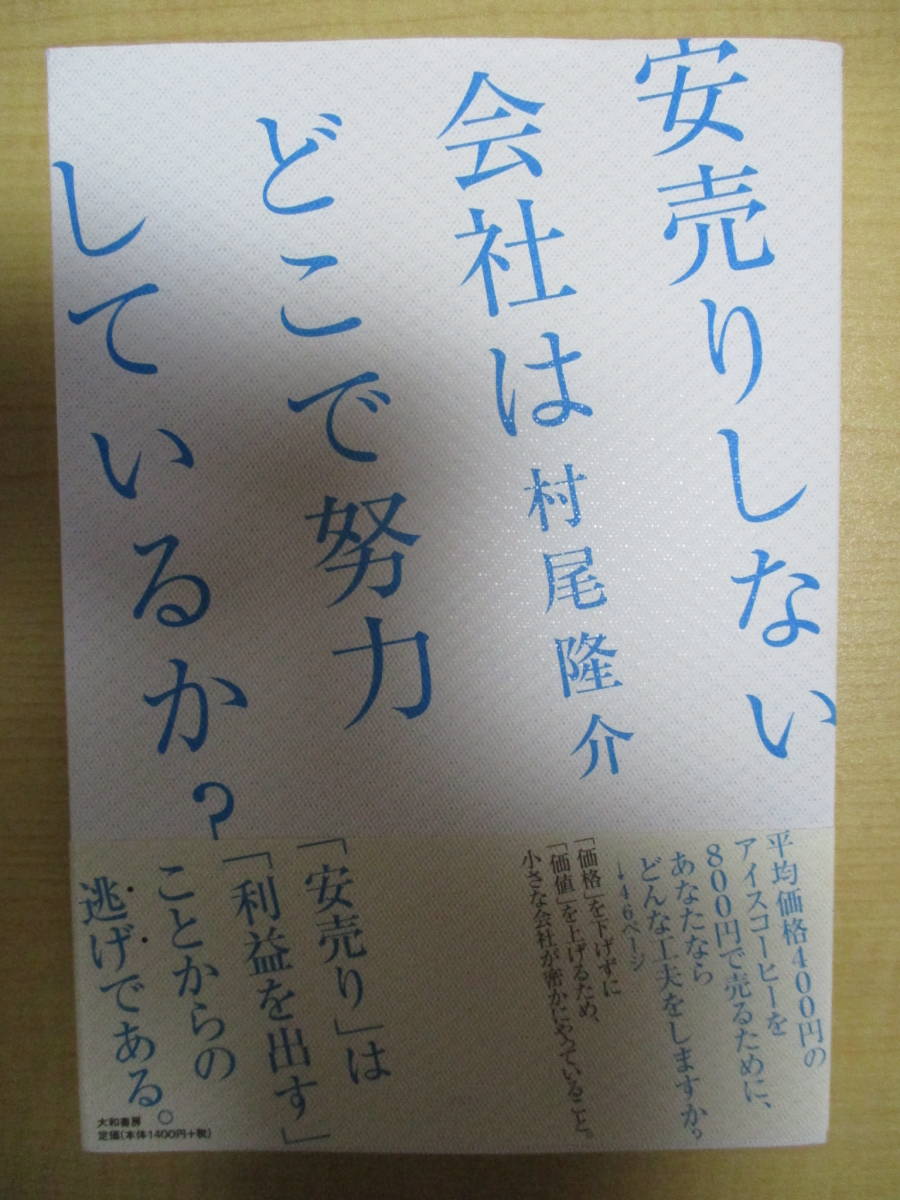 安売りしない
会社は
どこで努力
しているか?
村尾隆介
平均価格400円の
アイスコーヒーを
800円で売るために、
あなたなら
どんな工夫をしますか?
→46ページ
「価格」を下げずに
「価値」を上げるため、
小さな会社が密かにやっていること。
「安売り」は
「利益を出す」
ことからの
逃げである
大和書房
定価(本体1400円+税)